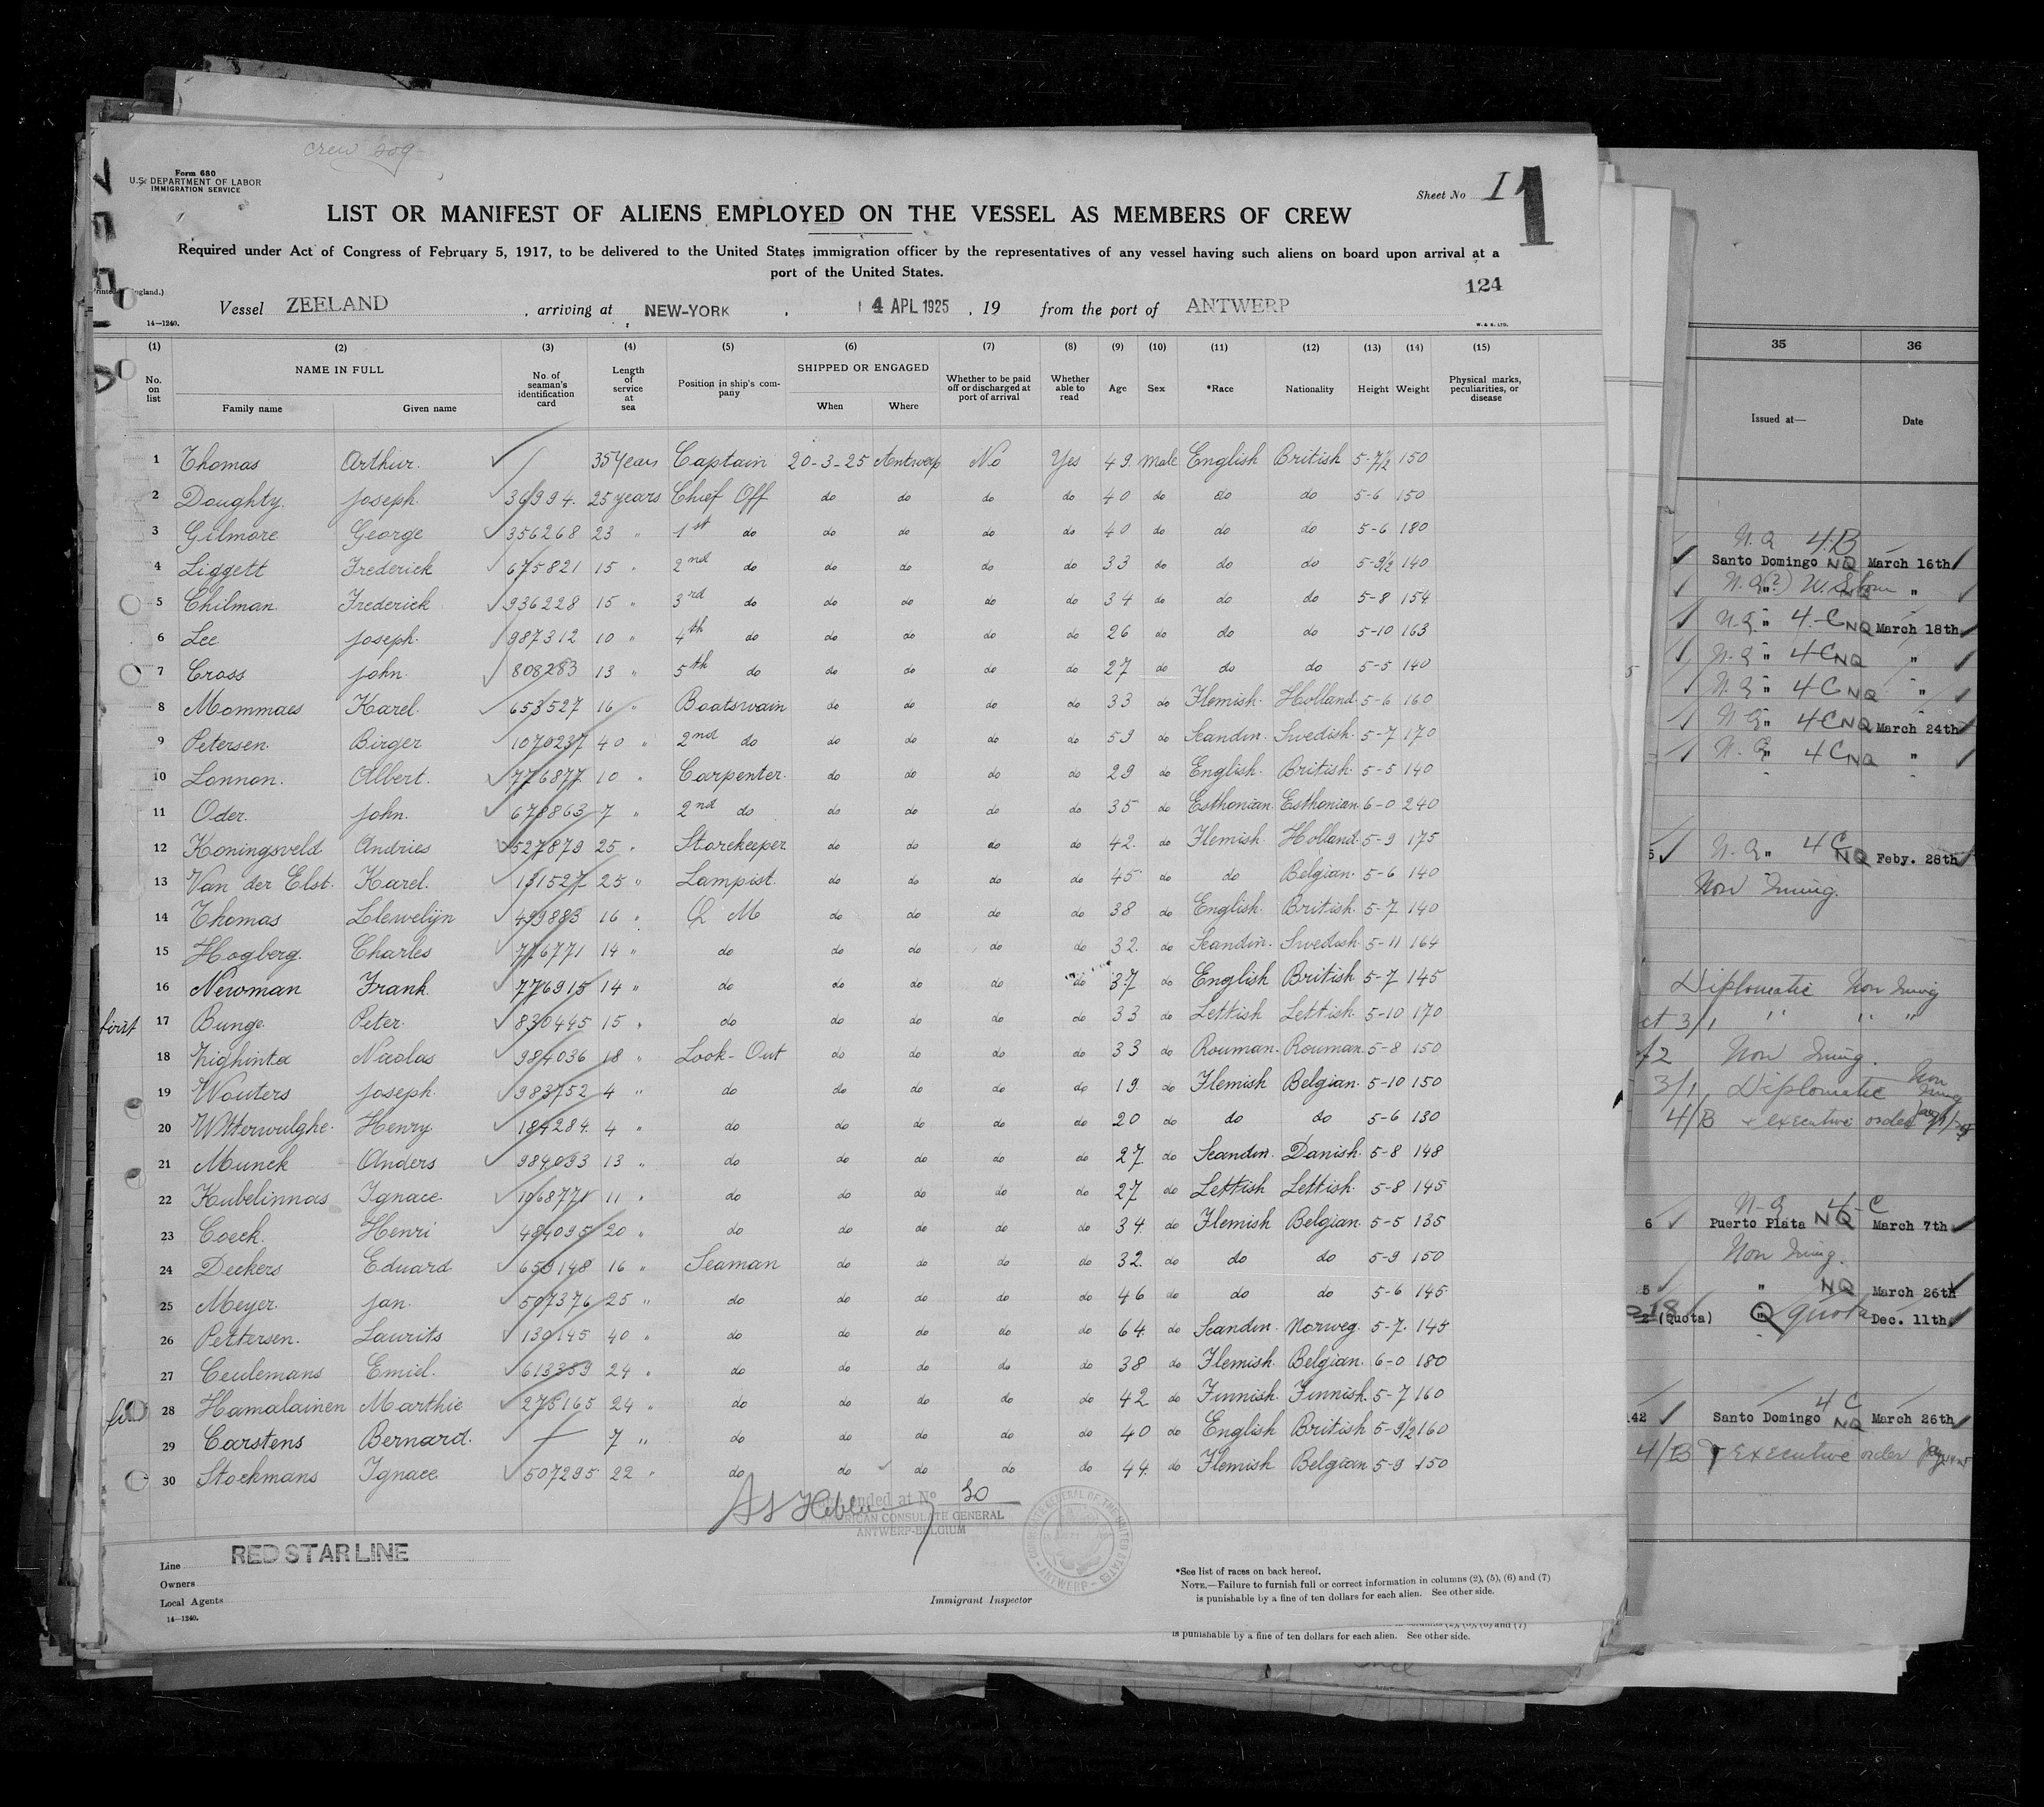 crew 209
Form 680
U.S. DEPARTMENT OF LABOR
IMMIGRATION SERVICE
Sheet No I 1
LIST OR MANIFEST OF ALIENS EMPLOYED ON THE VESSEL AS MEMBERS OF CREW
Required under Act of Congress of February 5, 1917, to be delivered to the United States immigration officer by the representatives of any vessel having such aliens on board upon arrival at a
port of the United States.
124
Vessel ZEELAND , arriving at NEW-YORK , 4 APL 1925 , 19 from the port of ANTWERP
14—1240.
(1) (2) (3) (4) (5) (6) (7) (8) (9) (10) (11) (12) (13) (14) (15)
No. on list NAME IN FULL Family name Given name No. of seaman's identification card Length of service at sea Position in ship's company SHIPPED OR ENGAGED When Where Whether to be paid off or discharged at port of arrival Whether able to read Age Sex *Race Nationality Height Weight Physical marks, peculiarities, or disease
1 Thomas Arthur. 35 Years Captain 20-3-25 Antwerp No Yes 49. Male English British 5-7½ 150
2 Doughty. Joseph. 36994. 25 years Chief Off do do do do 40 do do do 5-6 150
3 Gilmore George 356268 23 " 1st do do do do do 40 do do do 5-6 180
4 Liggett Frederick 675821 15 " 2nd do do do do do 33 do do do 5-9½ 140
5 Chilman Frederick 936228 15 " 3rd do do do do do 34 do do do 5-8 154
6 Lee Joseph. 987312 10 " 4th do do do do do 26 do do do 5-10 163
7 Cross John. 808283 13 " 5th do do do do do 27 do do do 5-5 140
8 Mommaes Karel. 653527 16 " Boatswain do do do do 33 do Flemish. Holland. 5-6 160
9 Petersen. Birger 1070237 40 " 2nd do do do do do 59 do Scandin. Swedish. 5-7 170
10 Lonnon. Albert. 776877 10 " Carpenter. do do do do 29 do English. British. 5-5 140
11 Oder. John. 678863 7 " 2nd do do do do do 35 do Esthonian. Esthonian. 6-0 240
12 Koningsveld Andries 527879 25 " Storekeeper do do do do 42. do Flemish. Holland. 5-9 175
13 Van der Elst. Karel. 131527 25 " Lampist. do do do do 45 do do Belgian. 5-6 140
14 Thomas Llewelijn 499883 16 " Q M do do do do 38 do English. British. 5-7 140
15 Hogberg. Charles 776771 14 " do do do do do 32. do Scandin. Swedish. 5-11 164
16 Newman Frank. 776915 14 " do do do do do 37 do English British. 5-7 145
17 Bunge. Peter. 830445 15 " do do do do do 33 do Lettish Lettish. 5-10 170
18 Nighinta Nicolas 984036 18 " Look-Out do do do do 33 do Rouman. Rouman. 5-8 150
19 Wouters Joseph. 983752 4 " do do do do do 19. do Flemish Belgian. 5-10 150
20 Witterwulghe. Henry. 184284. 4 " do do do do do 20 do do do 5-6 130
21 Munck Anders 984093 13 " do do do do do 27 do Scandin. Danish. 5-8 148
22 Kubelinnas Ignace. 1068771 11 " do do do do do 27 do Lettish Lettish. 5-8 145
23 Coeck. Henri 484095 20 " do do do do do 34. do Flemish Belgian. 5-5 135
24 Deckers Eduard 659148 16 " Seaman do do do do 32. do do do 5-9 150
25 Meyer. Jan. 507376 25 " do do do do do 46 do do do 5-6 145
26 Pettersen. Laurits 130145 40 " do do do do do 64. do Scandin. Norweg. 5-7. 145
27 Ceulemans Emiel. 613389 24 " do do do do do 38 do Flemish. Belgian. 6-0 180
28 Hamalainen Marthie 275165 24 " do do do do do 42 do Finnish. Finnish. 5-7 160
29 Carstens Bernard. 7 " do do do do do 40 do English British 5-9½ 160
30 Stockmans Ignace 507295 22 " do do do do do 44. do Flemish Belgian 5-9 150
ended at No 30
AMERICAN CONSULATE GENERAL
ANTWERP-BELGIUM
CONSULATE GENERAL OF THE UNITED STATES - ANTWERP -
Line RED STAR LINE
Owners
Local Agents
14—1240.
Immigrant Inspector
*See list of races on back hereof.
NOTE.—Failure to furnish full or correct information in columns (2), (5), (6) and (7)
is punishable by a fine of ten dollars for each alien. See other side.
is punishable by a fine of ten dollars for each alien. See other side.
35 36
Issued at— Date
N. Q 4-B
Santo Domingo NQ March 16th
"
N.Q. " 4-C NQ March 18th
N.Q " 4-C NQ "
N.Q " 4C NQ "
N.Q " 4C NQ March 24th
N.Q " 4C NQ "
5 N.Q " 4C NQ Feby. 28th
Non Immig.
Diplomatic Non Immig
ct 3/1 " " "
f2 Non Immig.
3/1 Diplomatic Non Immig
4/B executive order
N-Q 4-C
6 Puerto Plata NQ March 7th
Non Immig.
5 " NQ March 26th
(Quota) " Q quota Dec. 11th
4C
142 Santo Domingo NQ March 26th
4/B executive order